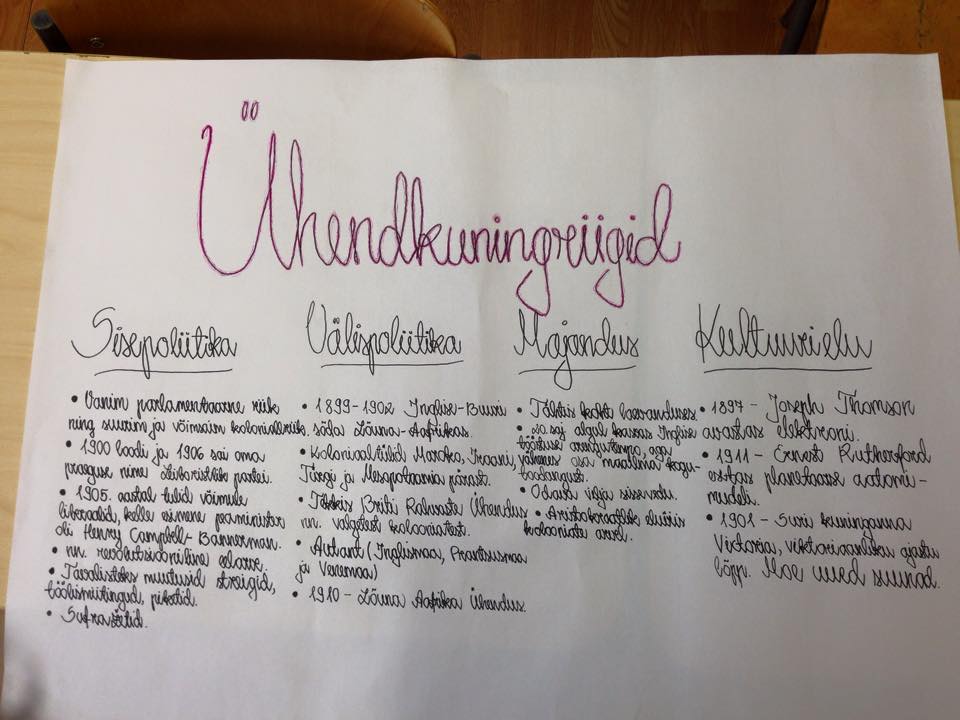 Ühendkuningriigid
Sisepoliitika
• Vanim parlamentaarne riik
ning suurim ja võimsaim koloniaalriik.
• 1900 loodi ja 1906 sai oma
praeguse nime Leiboristlik partei.
• 1905. aastal tulid võimule
liberaalid, kelle esimene peaminister
oli Henry Campbell-Bannerman.
• nn. revolutsiooniline eelarve.
• Tavalisteks muutusid streigid,
töölismiitingud, piketid.
• Sufražetid.
Välispoliitika
• 1899-1902 Inglise-Buuri
sõda Lõuna-Aafrikas.
• Koloniaaltülid Maroko, Iraani,
Türgi ja Mesopotaamia pärast.
• Tekkis Briti Rahvaste Ühendus
nn. valgetest kolooniatest.
• Antant (Inglismaa, Prantsusmaa
ja Venemaa)
• 1910 - Lõuna Aafrika Ühendus.
Majandus
• Tähtis koht kaevanduses.
• 20. saj algul kasvas Inglise
tööstuse arengutempo, aga
vähenes osa maailma kogu-
toodangust.
• Odava vilja sissevedu.
• Aristokraatlik eluviis
kolooniate arvel.
Kultuurielu
• 1897 - Joseph Thomson
avastas elektroni.
• 1911 - Ernest Rutherford
esitas planetaarse aatomi-
mudeli.
• 1901 - Suri kuninganna
Victoria, viktoriaanliku ajastu
lõpp. Moe uued suunad.